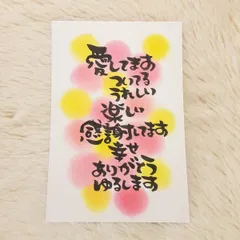 愛してます
ついてる
うれしい
楽しい
感謝してます
幸せ
ありがとう
ゆるします